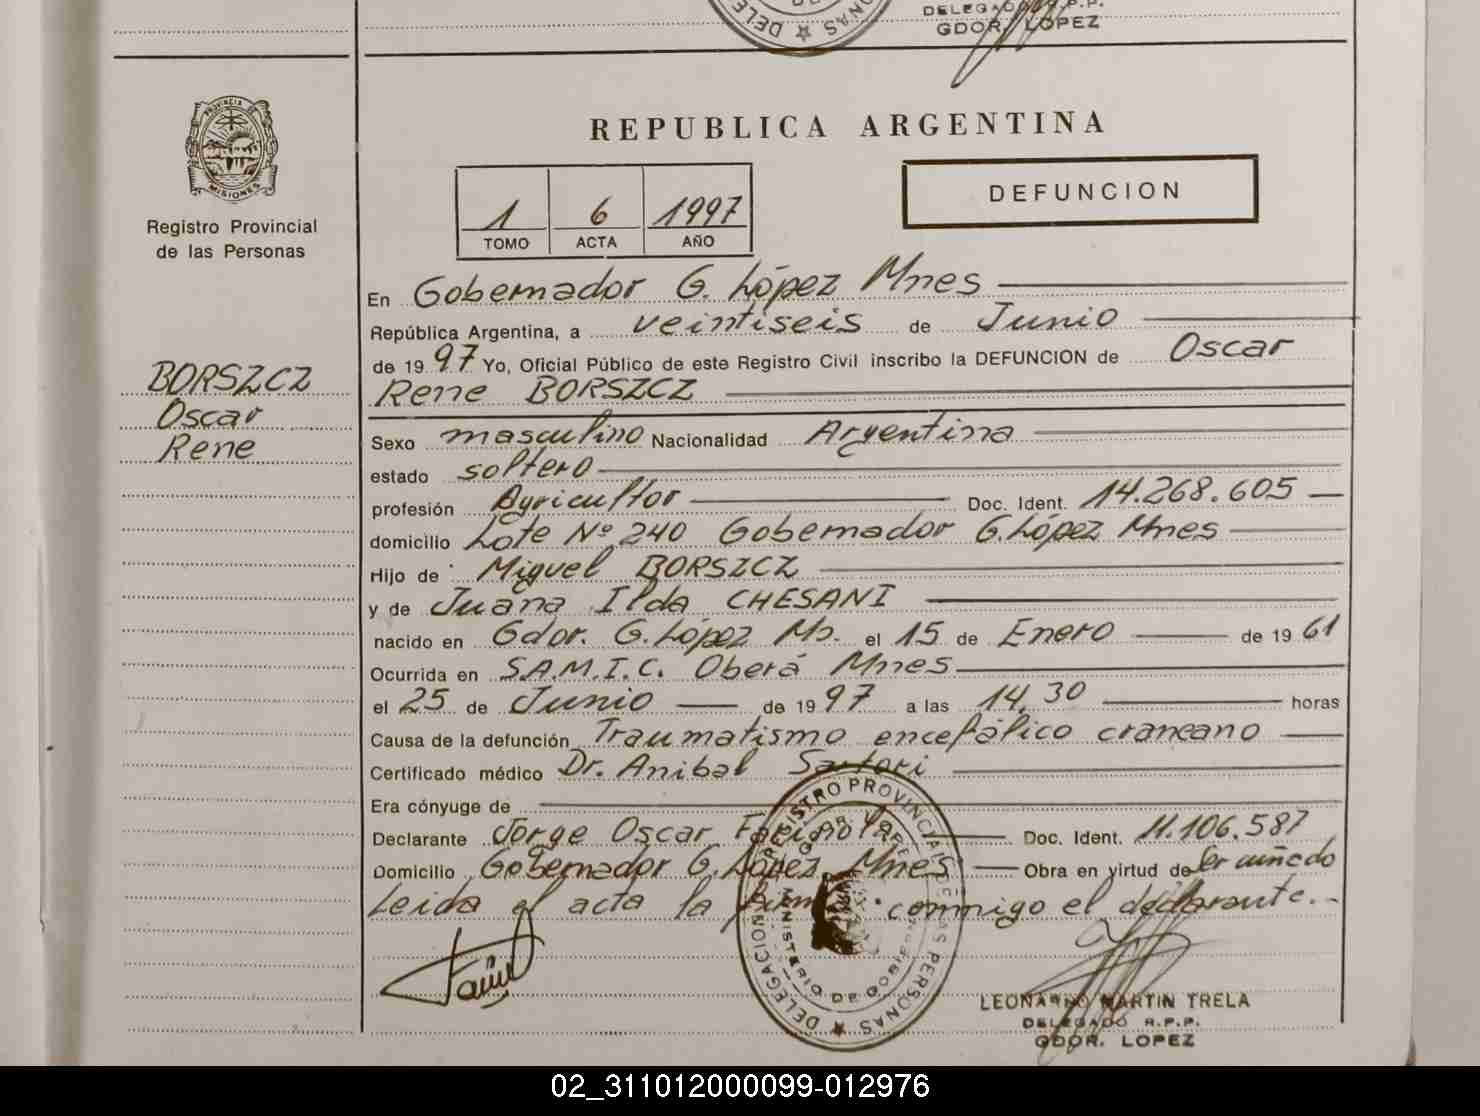 DELEGADO R.P.P.
GDOR. LOPEZ
PROVINCIA DE
MISIONES
Registro Provincial
de las Personas
REPUBLICA ARGENTINA
1 6 1997
TOMO ACTA AÑO
DEFUNCION
BORSZCZ
Oscar
Rene
En Gobernador G. López Mnes
República Argentina, a veintiseis de Junio
de 1997 Yo, Oficial Público de este Registro Civil inscribo la DEFUNCION de Oscar
Rene BORSZCZ
Sexo masculino Nacionalidad Argentina
estado soltero
profesión Agricultor Doc. Ident. 14.268.605
domicilio Lote Nº 240 Gobernador G. López Mnes
Hijo de Miguel BORSZCZ
y de Juana Ilda CHESANI
nacido en Gdor. G. López Ms. el 15 de Enero de 1961
Ocurrida en S.A.M.I.C. Oberá Mnes
el 25 de Junio de 1997 a las 14,30 horas
Causa de la defunción Traumatismo encefálico craneano
Certificado médico Dr. Anibal Sartori
Era cónyuge de
Declarante Jorge Oscar Doc. Ident. 11.106.587
Domicilio Gobernador G. López Mnes Obra en virtud de Ser cuñado
Leida el acta la firma conmigo el declarante.-
DELEGACION REGISTRO PROVINCIAL DE LAS PERSONAS
GDOR. LOPEZ
MINISTERIO DE GOBIERNO
LEONARDO MARTIN TRELA
DELEGADO R.P.P.
GDOR. LOPEZ
02_311012000099-012976